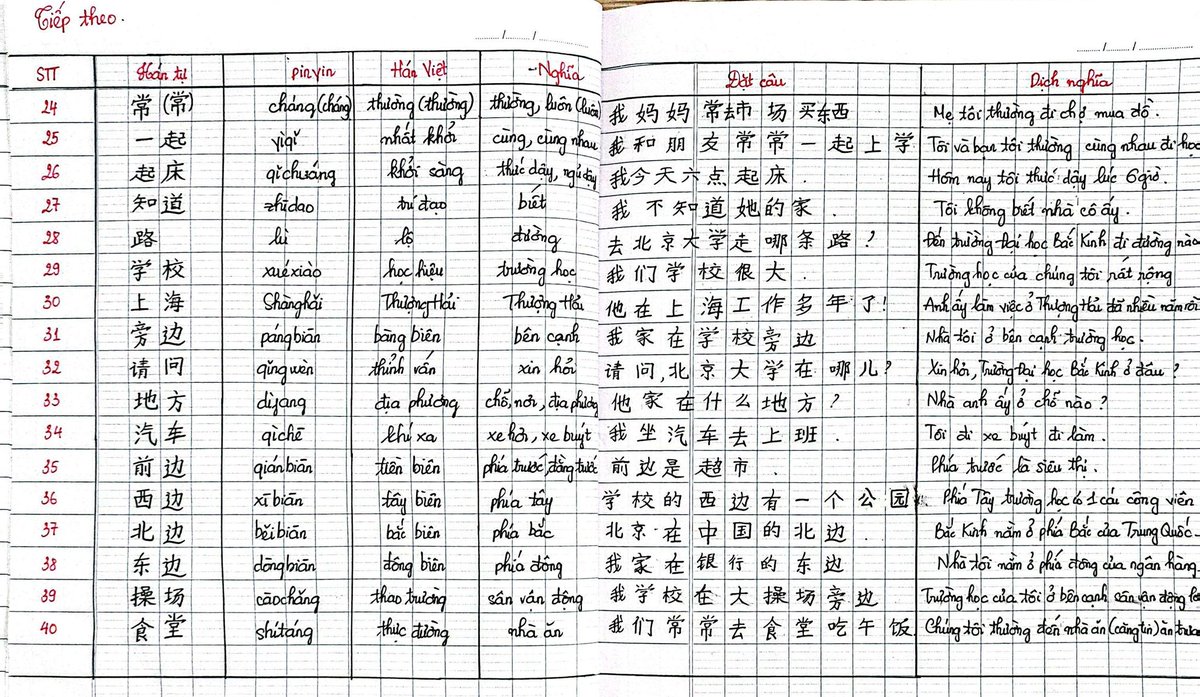 Tiếp theo.
...../...../..........
...../...../..........
STT Hán tự pinyin Hán Việt Nghĩa Đặt câu Dịch nghĩa
24 常(常) cháng(cháng) thường(thường) thường, luôn(luôn) 我妈妈常去市场买东西 Mẹ tôi thường đi chợ mua đồ.
25 一起 yìqǐ nhất khởi cùng, cùng nhau 我和朋友常常一起上学 Tôi và bạn tôi thường cùng nhau đi học
26 起床 qǐchuáng khởi sàng thức dậy, ngủ dậy 我今天六点起床. Hôm nay tôi thức dậy lúc 6 giờ.
27 知道 zhīdao tri đạo biết 我不知道她的家. Tôi không biết nhà cô ấy.
28 路 lù lộ đường 去北京大学走哪条路? Đến trường Đại học Bắc Kinh đi đường nào
29 学校 xuéxiào học hiệu trường học 我们学校很大. Trường học của chúng tôi rất rộng
30 上海 Shànghǎi Thượng Hải Thượng Hải 他在上海工作多年了! Anh ấy làm việc ở Thượng Hải đã nhiều năm rồi
31 旁边 pángbiān bàng biên bên cạnh 我家在学校旁边 Nhà tôi ở bên cạnh trường học.
32 请问 qǐngwèn thỉnh vấn xin hỏi 请问,北京大学在哪儿? Xin hỏi, Trường Đại học Bắc Kinh ở đâu?
33 地方 dìfang địa phương chỗ, nơi, địa phương 他家在什么地方? Nhà anh ấy ở chỗ nào?
34 汽车 qìchē khí xa xe hơi, xe buýt 我坐汽车去上班. Tôi đi xe buýt đi làm.
35 前边 qiánbiān tiền biên phía trước, đằng trước 前边是超市. Phía trước là siêu thị.
36 西边 xībiān tây biên phía tây 学校的西边有一个公园. Phía Tây trường học có 1 cái công viên
37 北边 běibiān bắc biên phía bắc 北京在中国的北边. Bắc Kinh nằm ở phía Bắc của Trung Quốc.
38 东边 dōngbiān đông biên phía đông 我家在银行的东边 Nhà tôi nằm ở phía đông của ngân hàng.
39 操场 cāochǎng thao trường sân vận động 我学校在大操场旁边 Trường học của tôi ở bên cạnh sân vận động
40 食堂 shítáng thực đường nhà ăn 我们常常去食堂吃午饭. Chúng tôi thường đến nhà ăn (căng tin) ăn trưa